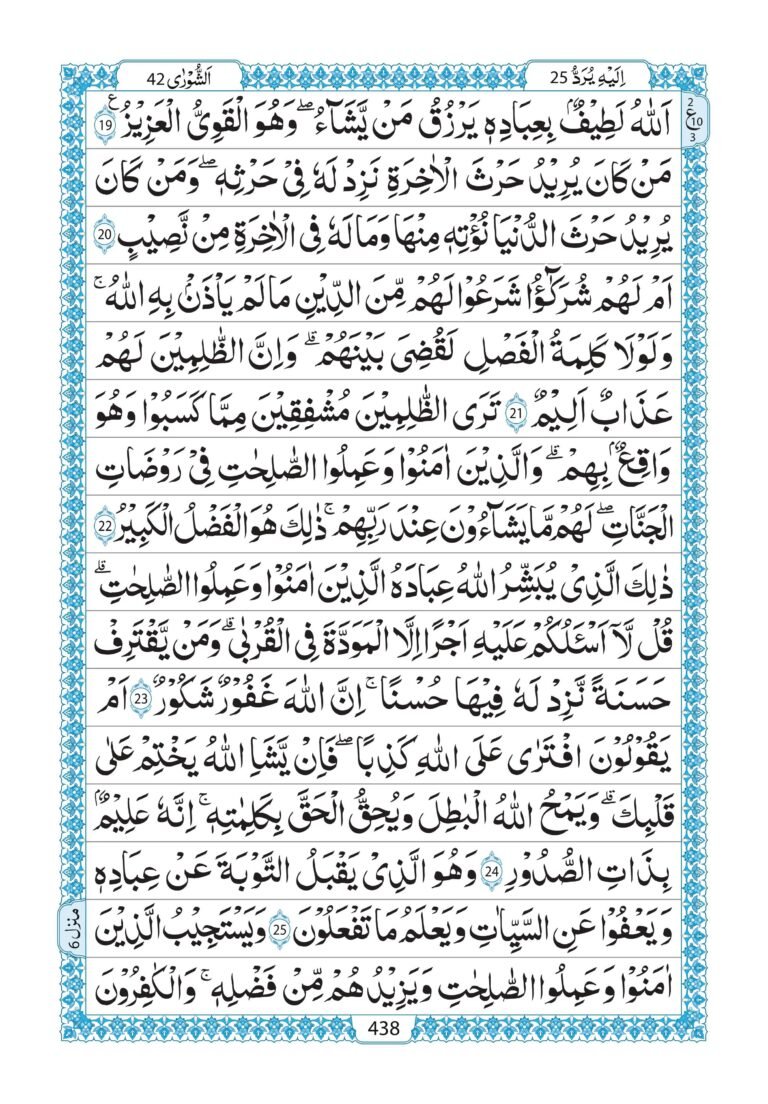 اِلَيْهِ يُرَدُّ 25
اَلشُّوْرٰى 42
اَللّٰهُ لَطِيْفٌۢ بِعِبَادِهٖ يَرْزُقُ مَنْ يَّشَآءُ ۖ وَهُوَ الْقَوِىُّ الْعَزِيْزُ 19 ع
2
ع 10
3
مَنْ كَانَ يُرِيْدُ حَرْثَ الْاٰخِرَةِ نَزِدْ لَهٗ فِىْ حَرْثِهٖ ۖ وَمَنْ كَانَ
يُرِيْدُ حَرْثَ الدُّنْيَا نُؤْتِهٖ مِنْهَا وَمَا لَهٗ فِى الْاٰخِرَةِ مِنْ نَّصِيْبٍ 20
اَمْ لَهُمْ شُرَكٰٓؤُا شَرَعُوْا لَهُمْ مِّنَ الدِّيْنِ مَا لَمْ يَاْذَنْۢ بِهِ اللّٰهُ ۚ
وَلَوْلَا كَلِمَةُ الْفَصْلِ لَقُضِىَ بَيْنَهُمْ ۗ وَاِنَّ الظّٰلِمِيْنَ لَهُمْ
عَذَابٌ اَلِيْمٌ 21 تَرَى الظّٰلِمِيْنَ مُشْفِقِيْنَ مِمَّا كَسَبُوْا وَهُوَ
وَاقِعٌۢ بِهِمْ ۗ وَالَّذِيْنَ اٰمَنُوْا وَعَمِلُوا الصّٰلِحٰتِ فِىْ رَوْضَاتِ
الْجَنَّاتِ ۖ لَهُمْ مَّا يَشَآءُوْنَ عِنْدَ رَبِّهِمْ ۚ ذٰلِكَ هُوَ الْفَضْلُ الْكَبِيْرُ 22
ذٰلِكَ الَّذِىْ يُبَشِّرُ اللّٰهُ عِبَادَهُ الَّذِيْنَ اٰمَنُوْا وَعَمِلُوا الصّٰلِحٰتِ ۗ
قُلْ لَّآ اَسْـَٔلُكُمْ عَلَيْهِ اَجْرًا اِلَّا الْمَوَدَّةَ فِى الْقُرْبٰى ۗ وَمَنْ يَّقْتَرِفْ
حَسَنَةً نَّزِدْ لَهٗ فِيْهَا حُسْنًا ۚ اِنَّ اللّٰهَ غَفُوْرٌ شَكُوْرٌ 23 اَمْ
يَقُوْلُوْنَ افْتَرٰى عَلَى اللّٰهِ كَذِبًا ۖ فَاِنْ يَّشَاِ اللّٰهُ يَخْتِمْ عَلٰى
قَلْبِكَ ۗ وَيَمْحُ اللّٰهُ الْبَاطِلَ وَيُحِقُّ الْحَقَّ بِكَلِمٰتِهٖ ۚ اِنَّهٗ عَلِيْمٌۢ
بِذَاتِ الصُّدُوْرِ 24 وَهُوَ الَّذِىْ يَقْبَلُ التَّوْبَةَ عَنْ عِبَادِهٖ
وَيَعْفُوْا عَنِ السَّيِّاٰتِ وَيَعْلَمُ مَا تَفْعَلُوْنَ 25 وَيَسْتَجِيْبُ الَّذِيْنَ
منزل 6
اٰمَنُوْا وَعَمِلُوا الصّٰلِحٰتِ وَيَزِيْدُهُمْ مِّنْ فَضْلِهٖ ۚ وَالْكٰفِرُوْنَ
438